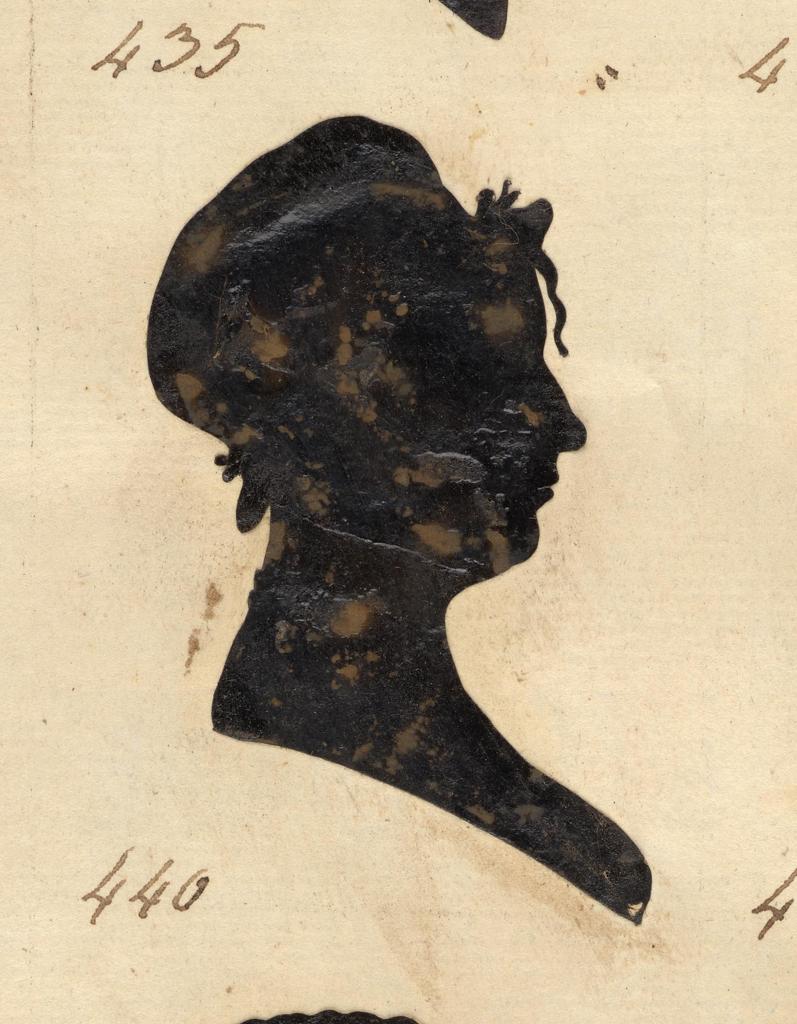 435
4
440
4